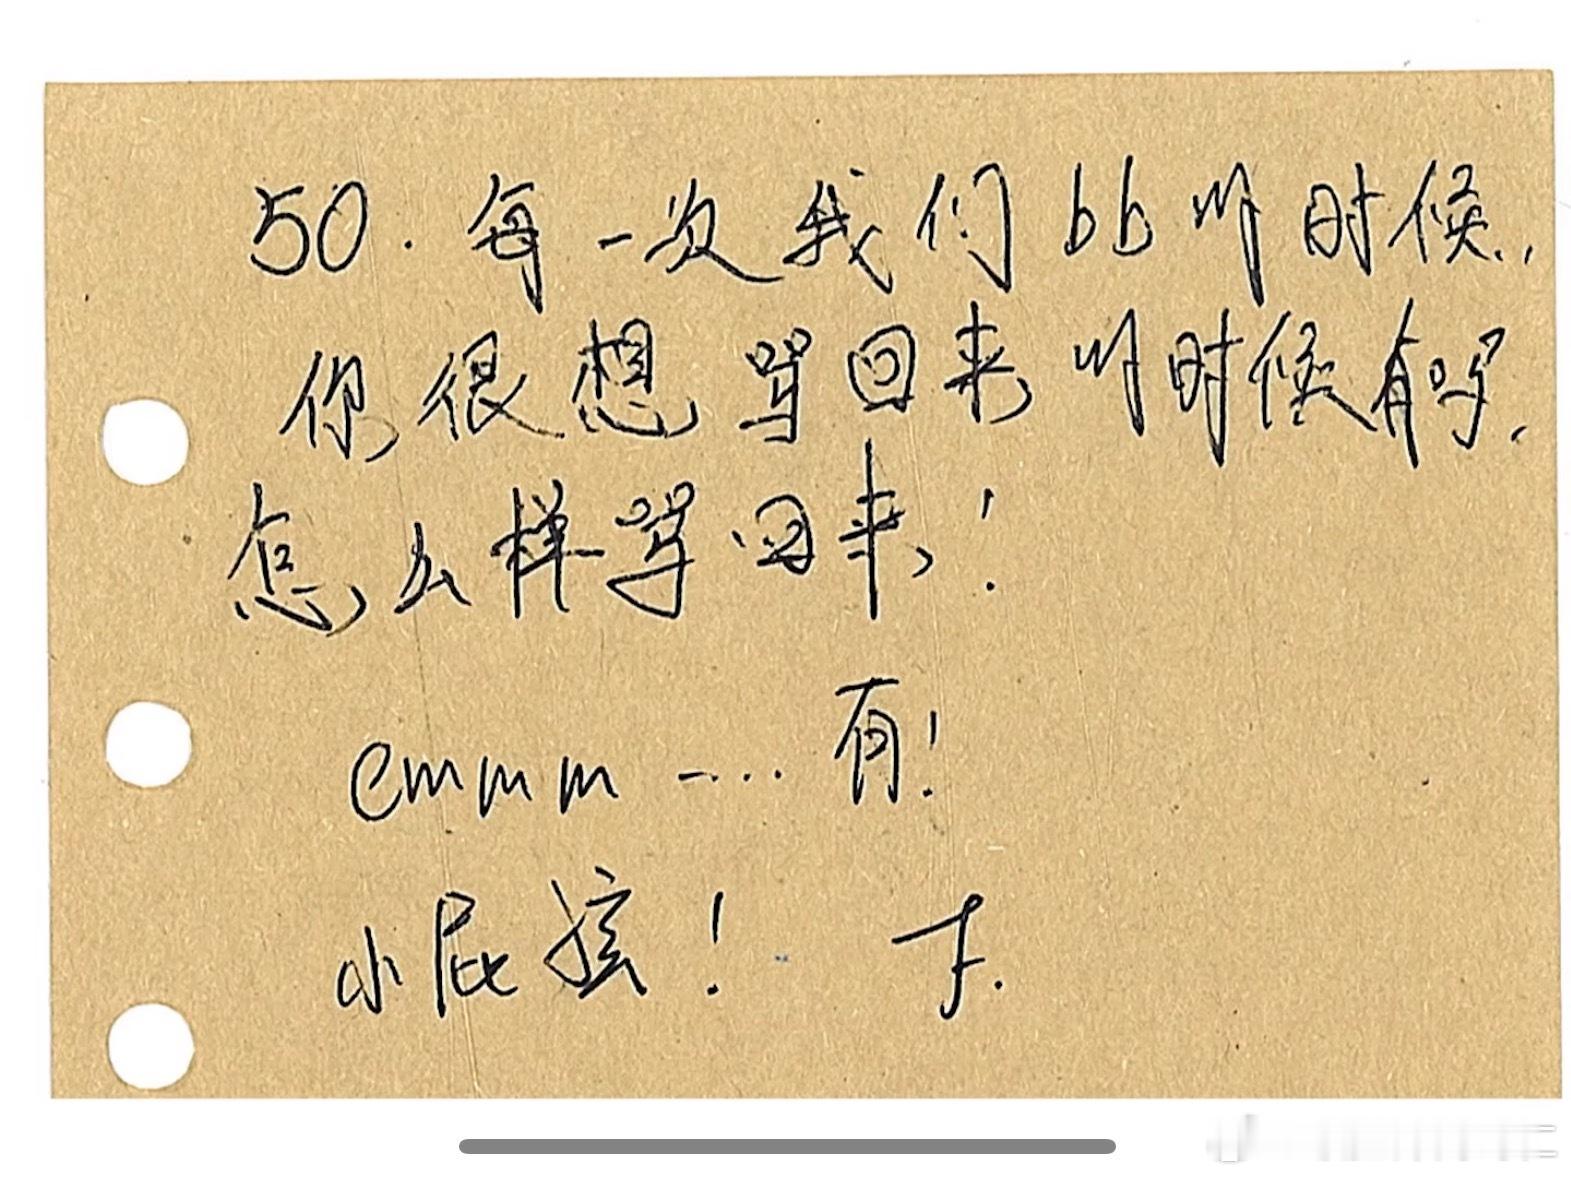 50. 每一次我们bb的时候.,
你很想骂回来的时候有吗.
怎么样骂回来!
emmm ..... 有!
小屁孩!